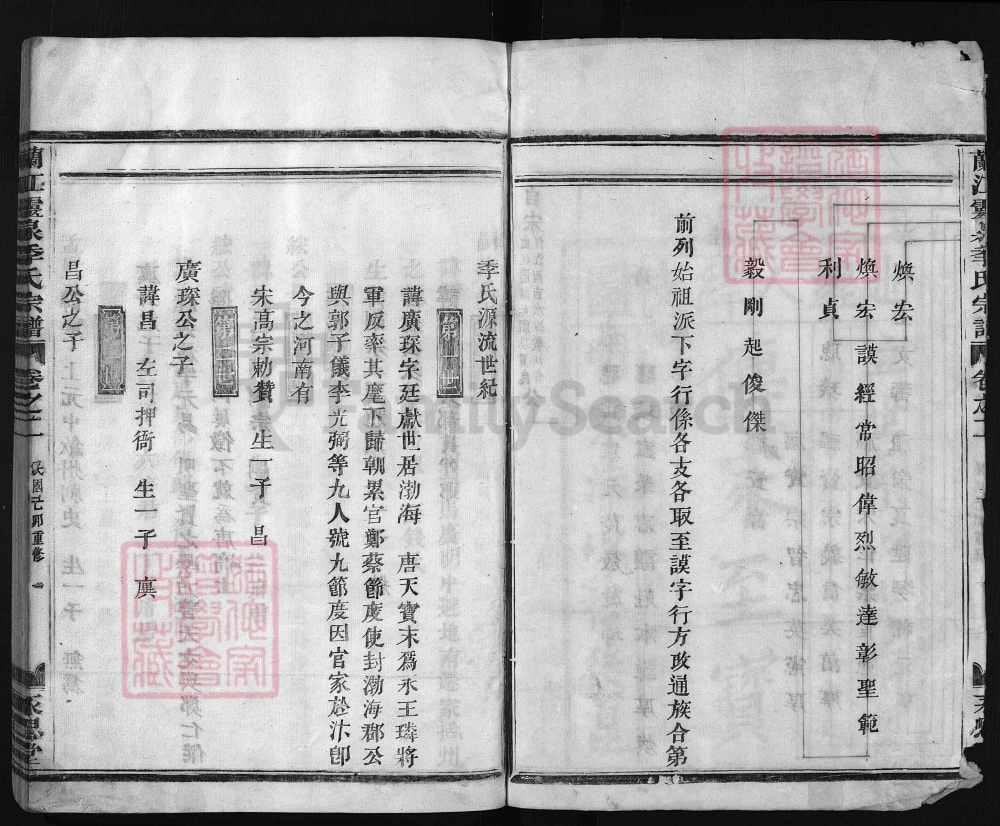 煥宏
煥宏謨經常昭偉烈敏達彰聖範
利貞
毅剛起俊傑
前列始祖派下字行係各支各取至謨字行方政通族合第
季氏源流世紀
第一世
諱廣琛字廷獻世居渤海　唐天寶末爲永王璘將
軍反率其麾下歸朝累官鄭蔡節度使封渤海郡公
與郭子儀李光弼等九人號九節度因官家於汴卽
今之河南有
宋高宗勅贊　生一子　昌
廣琛公之子
諱昌　左司押衙　生一子　廙
昌公之子
蘭江靈泉季氏宗譜　卷之二　民國己卯重修
永思堂
FamilySearch